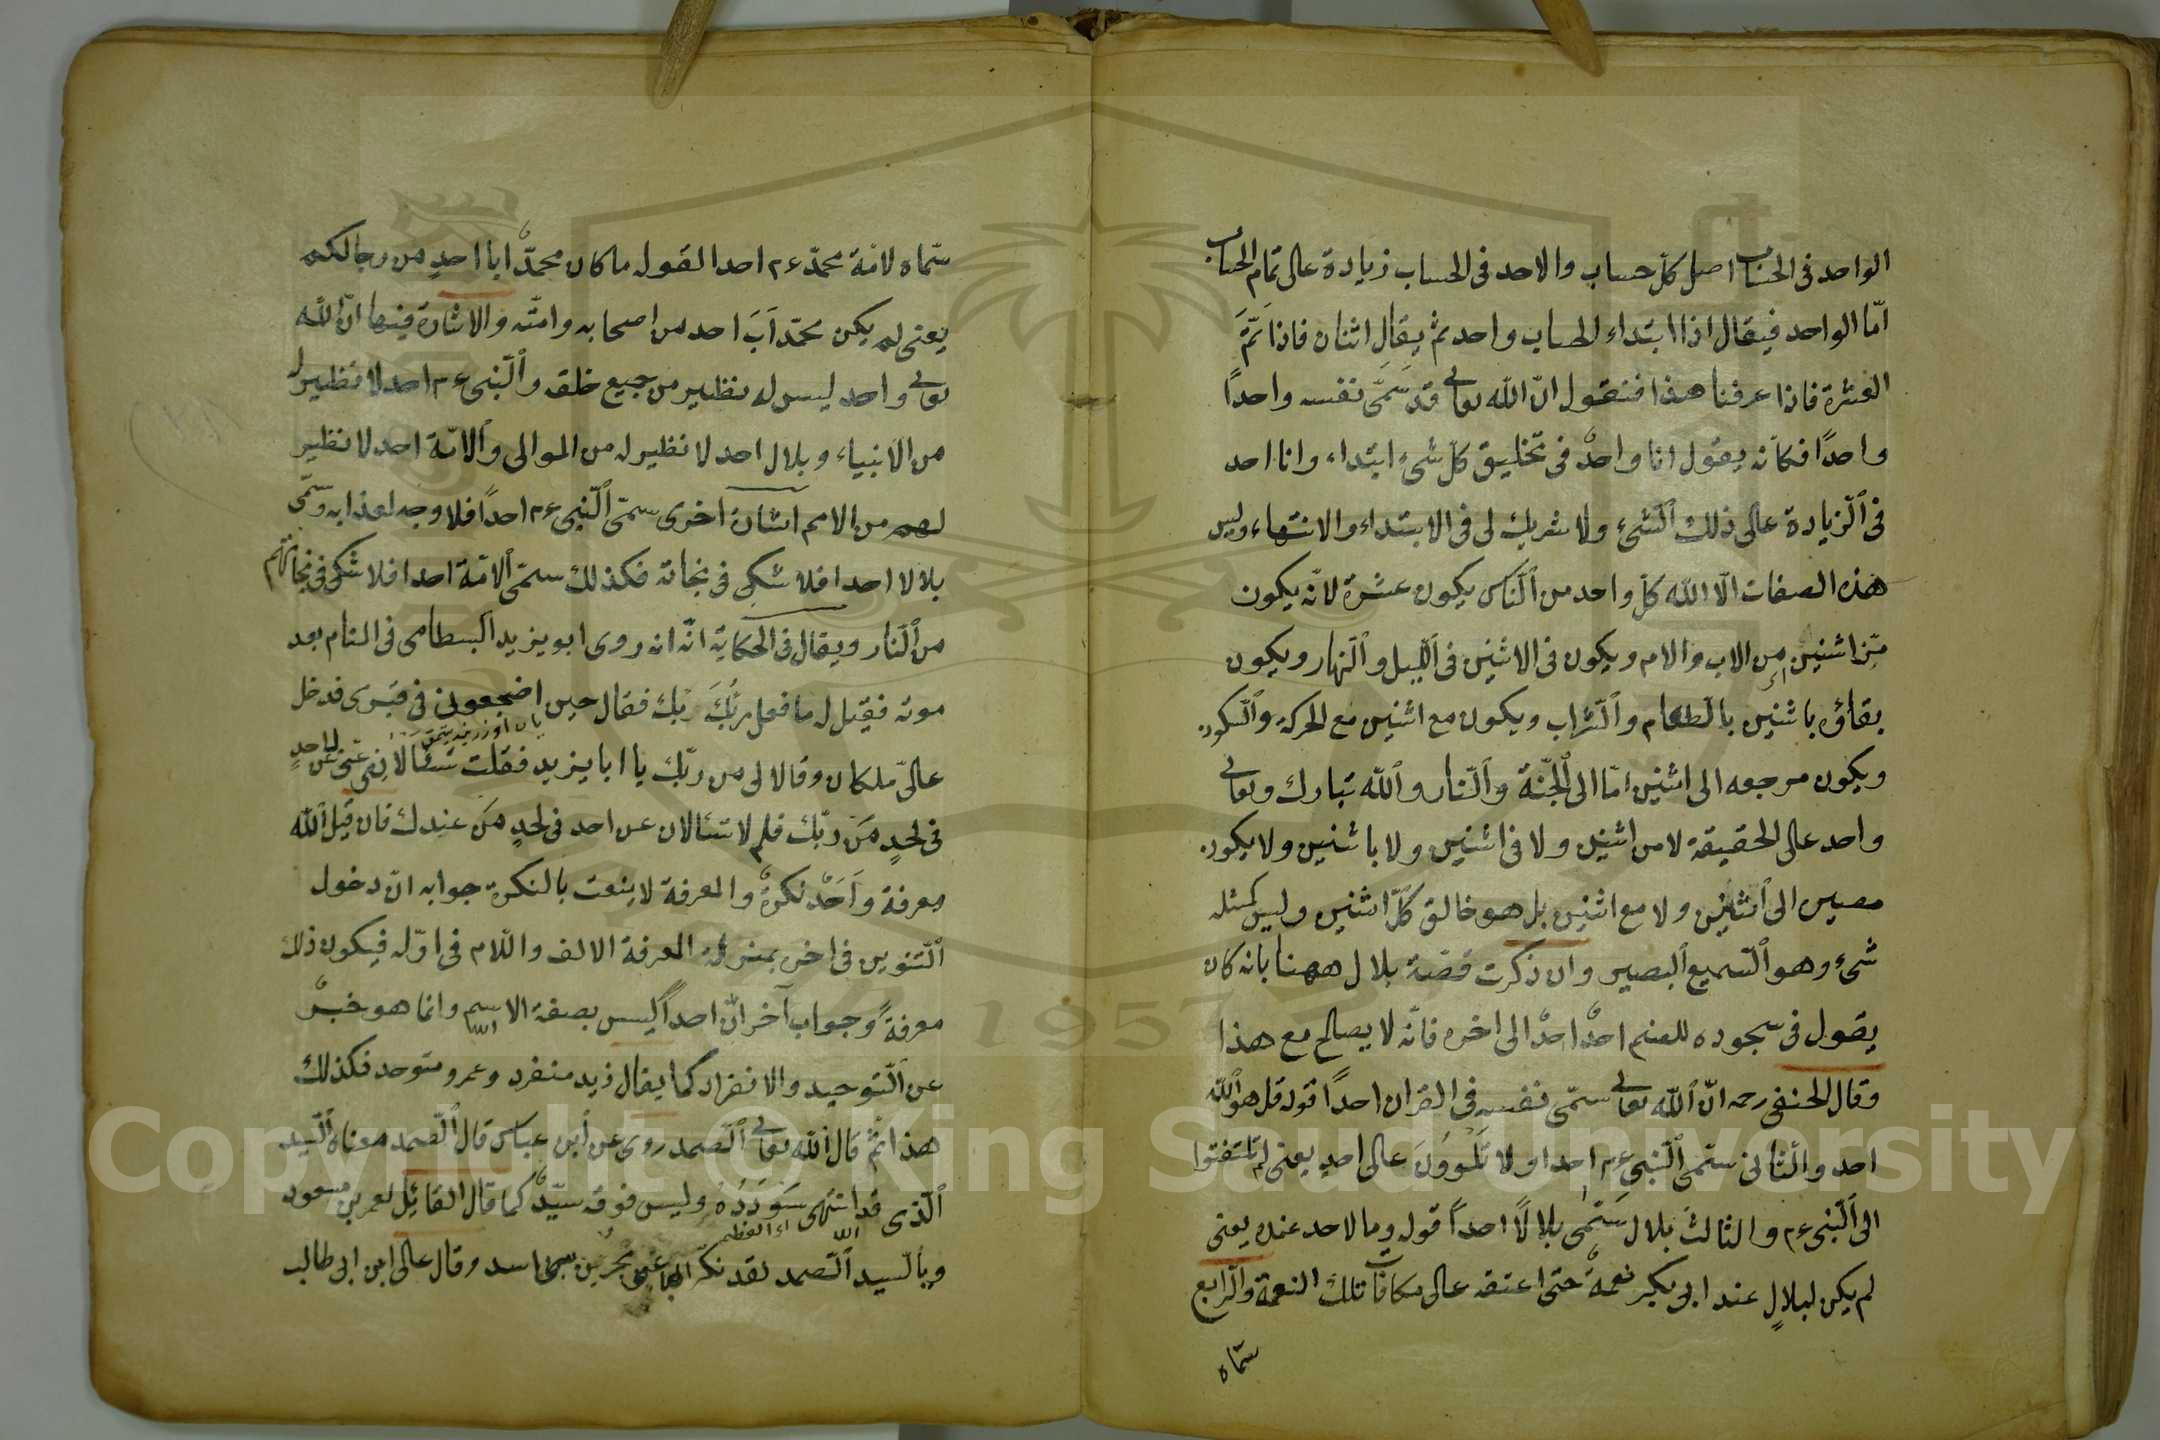 الواحد فى الحساب اصل كلّ حساب والاحد فى الحساب زيادة على تمام الحساب
امّا الواحد فيقال اذا ابتداء الحساب واحد ثم يقال اثنان فاذا تمّ
العشرة فاذا عرفنا هذا فنقول انّ الله تعالى قد سَمَّى نفسه واحداً
واحداً فكانه يقول انا واحدٌ فى تخليق كلّ شئ ابتداء وانا احد
فى الزيادة على ذلك الشئ ولا شريك لى فى الابتداء والانتهاء وليس
هذه الصفات الّا الله كلّ واحد من النّاس يكون عشرة لانّه يكون
من اثنين من الاب والام ويكون فى الاثنين فى الليل والنهار ويكون
بقاؤه باثنين بالطعام والشراب ويكون مع اثنين مع الحركة والسكون
ويكون مرجعه الى اثنين امّا الى الجنّة والنار والله تبارك وتعالى
واحد على الحقيقة لا من اثنين ولا فى اثنين ولا باثنين ولا يكون
مصيره الى اثنين ولا مع اثنين بل هو خالق كلّ اثنين وليس كمثله
شئ وهو السميع البصير وان ذكرت قصّة بلال ههنا بانه كان
يقول فى سجوده للصنم احدٌ احدٌ الى اخره فانّه لا يصالح مع هذا
وقال الحنفى رحمه انّ الله تعالى سمّى نفسه فى القران احداً قوله قل هو الله
احد والثانى سمّى النّبى ء م احدا ولا تَلْوُونَ على احدٍ يعنى لم تلتفتوا
الى النّبى ء م والثالث بلال سَمَّى بلالًا احداً قوله وما لاحد عنده يعنى
لم يكن لبلالٍ عند ابى بكر نعمةٌ حتى اعتقه على مكافات تلك النعمة والرابع
سمّاه
سمّاه لامّة محمدّ ء م احدا لقوله ما كان محمدٌ ابا احدٍ من رجالكم
يعنى لم يكن محمّد اَبَ احد من اصحابه وامّته والاشارة فيها انّ الله
تعالى واحد ليس له نظير من جميع خلقه والنّبى ء م احد لا نظير له
من الانبياء وبلال احد لا نظير له من الموالى والامّة احد لا نظير
لهم من الامم اشارة اخرى سمّى النّبى ء م احداً فلا وجه لعذابه وسمّى
بلالا احدا فلا شكّ فى نجاته فكذلك سمّى الامّة احدا فلا شكّ فى نجاتهم
من النار ويقال فى الحكاية انّه انه روى ابو يزيد البسطامى فى المنام بعد
موته فقيل له ما فعل بك ربّك فقال حين اضجعونى فى قبرى قد دخل
علىّ ملكان وقالا لى من ربّك يا ابا يزيد فقلت تسئالانِنى عن احدٍ
فى لحدٍ مَن ربّك فلم لا تسئالان عن احد فى لحدٍ مَن عندك فان قيل الله
معرفة واَحَدٌ نكرةٌ والمعرفة لا ينعت بالنكرة جوابه انّ دخول
التنوين فى اخره بمنزلة المعرفة الالف واللام فى اوّله فيكون ذلك
معرفةً وجواب آخر انّ احداً ليس بصفة الاسم وانما هو خبرٌ
الله
عن التوحيد والانفراد كما يقال زيد منفرد وعمرو متوحد فكذلك
هذا ثمّ قال الله تعالى الصمد روى عن ابن عباس قال الصمد معناه السيد
الذى قد انتهى سَوْدَدُهُ وليس فوقه سيّدٌ كما قال القائل لعمر بن مسعود
الله
وبالسيد الصمد لقد بكر الناعى بخير بنى اسد وقال على ابن ابى طالب
Copyright © King Saud University
1957